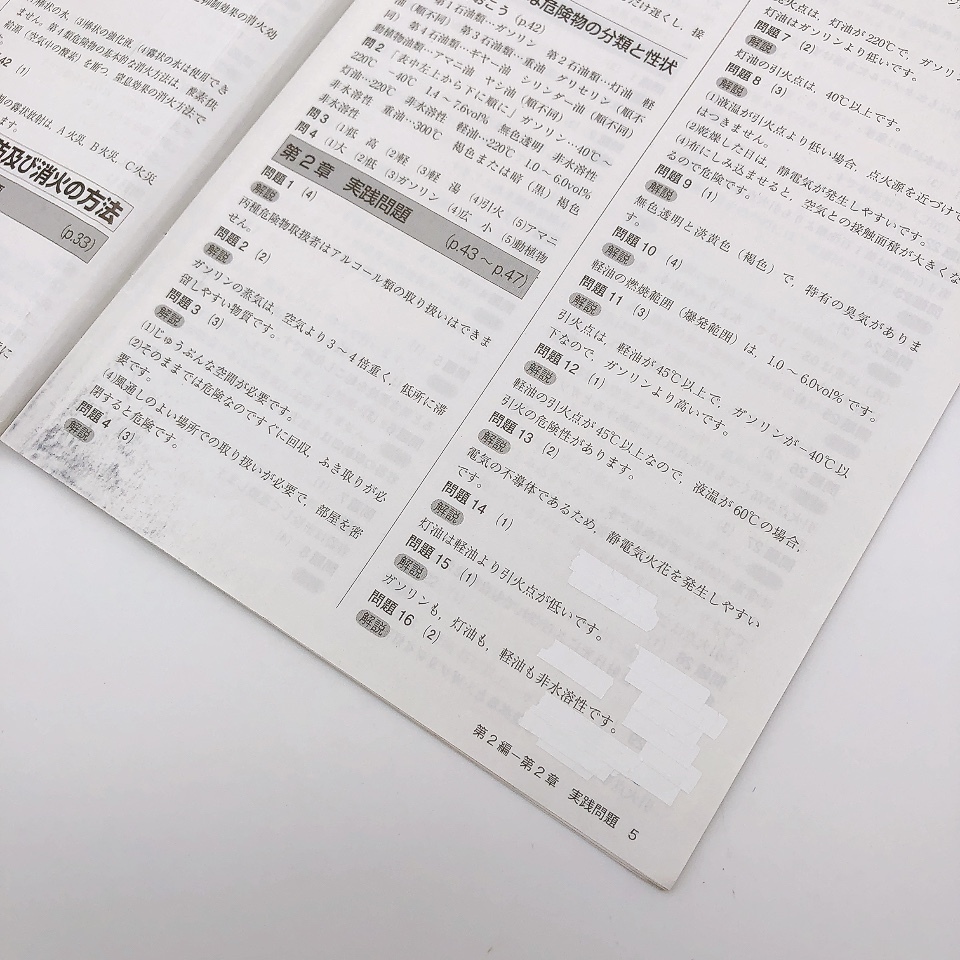 制効果の消火効
(2)棒状の水, (3)棒状の強化液, (4)霧状の水は使用でき
ません。第4類危険物の基本的な消火方法は, 酸素供
給源(空気中の酸素)を断つ, 窒息効果の消火方法で
42 (1)
の霧状放射は, A火災 B火災, C火災
防及び消火の方法
(p.33)
危険物の分類と性状
おこう (p.42)
第1石油類…ガソリン 第2石油類…灯油 軽
油 (順不同) 第3石油類…重油 グリセリン (順不
同) 第4石油類…ギヤー油 シリンダー油 (順不同)
動植物油類…アマニ油 ヤシ油 (順不同)
問2 「表中左上から下に順に」ガソリン…-40℃~
220℃ -40℃ 1.4~7.6vol% 無色透明 非水溶性
灯油…220℃ 非水溶性 軽油…220℃ 1.0~6.0vol%
非水溶性 重油…300℃ 褐色または暗(黒)褐色
非水溶性
問3 (1)低 高 (2)軽 (3)軽 湯 (4)引火 (5)アマニ
問4 (1)大 (2)低 (3)ガソリン (4)広 小 (5)動植物
第2章 実践問題 (p.43~p.47)
問題1 (4)
解説
丙種危険物取扱者はアルコール類の取り扱いはできま
せん。
問題2 (2)
解説
ガソリンの蒸気は, 空気より3~4倍重く, 低所に滞
留しやすい物質です。
問題3 (3)
解説
(1)じゅうぶんな空間が必要です。
(2)そのままでは危険なのですぐに回収, ふき取りが必
要です。
(4)風通しのよい場所での取り扱いが必要で, 部屋を密
閉すると危険です。
問題4 (3)
解説
だけ遅くし, 接
火点は, 灯油が220℃で, ガソリン
灯油はガソリンより低いです。
問題7 (2)
解説
灯油の引火点は, 40℃以上です。
問題8 (3)
解説
(1)液温が引火点より低い場合, 点火源を近づけて
はつきません。
(2)乾燥した日は, 静電気が発生しやすいです。
(4)布にしみ込ませると, 空気との接触面積が大きくな
るので危険です。
問題9 (1)
解説
無色透明と淡黄色(褐色)で, 特有の臭気がありま
す。
問題10 (4)
解説
軽油の燃焼範囲(爆発範囲)は, 1.0~6.0vol%です。
問題11 (3)
解説
引火点は, 軽油が45℃以上で, ガソリンが-40℃以
下なので, ガソリンより高いです。
問題12 (1)
解説
軽油の引火点が45℃以上なので, 液温が60℃の場合,
引火の危険性があります。
問題13 (2)
解説
電気の不導体であるため, 静電気火花を発生しやすい
です。
問題14 (1)
解説
灯油は軽油より引火点が低いです。
問題15 (1)
解説
ガソリンも, 灯油も, 軽油も非水溶性です。
問題16 (2)
解説
第2編-第2章 実践問題 5